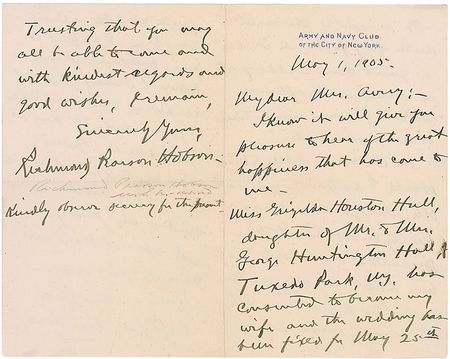 ARMY AND NAVY CLUB
OF THE CITY OF NEW YORK.
May 1, 1905-
My dear Mrs. Avery;-
I know it will give you
pleasure to hear of the great
happiness that has come to
me-
Miss Grizelda Houston Hull,
daughter of Mr. & Mrs.
George Huntington Hull,
Tuxedo Park, Ny, has
consented to become my
wife and the wedding has
been fixed for May 25th
Trusting that you may
all be able to come and
with kindest regards and
good wishes, I remain,
Sincerely Yours,
Richmond Pearson Hobson-
Richmond Pearson Hobson
Kindly observe secrecy for the present.